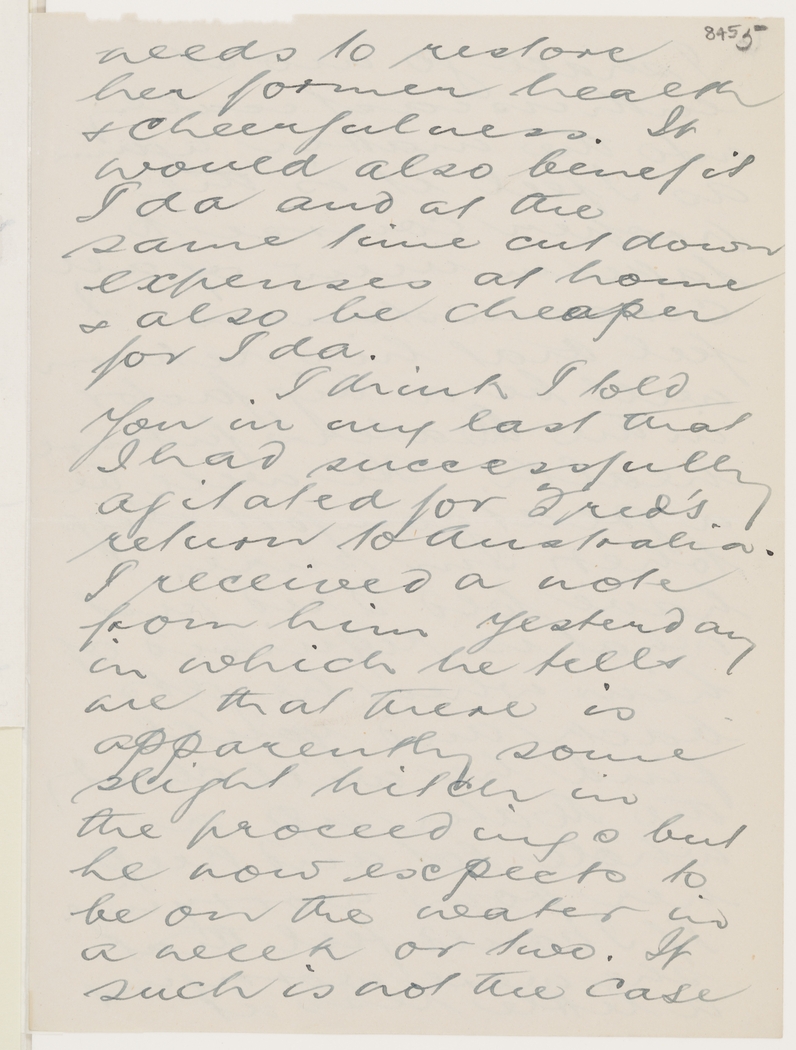 8455
needs to restore
her former health
& cheerfulness. It
would also benefit
Ida and at the
same time cut down
expenses at home
& also be cheaper
for Ida.
I think I told
you in my last that
I had successfully
agitated for Fred's
return to Australia.
I received a note
from him yesterday
in which he tells
me that there is
apparently some
slight hitch in
the proceedings but
he now expects to
be on the water in
a week or two. If
such is not the case